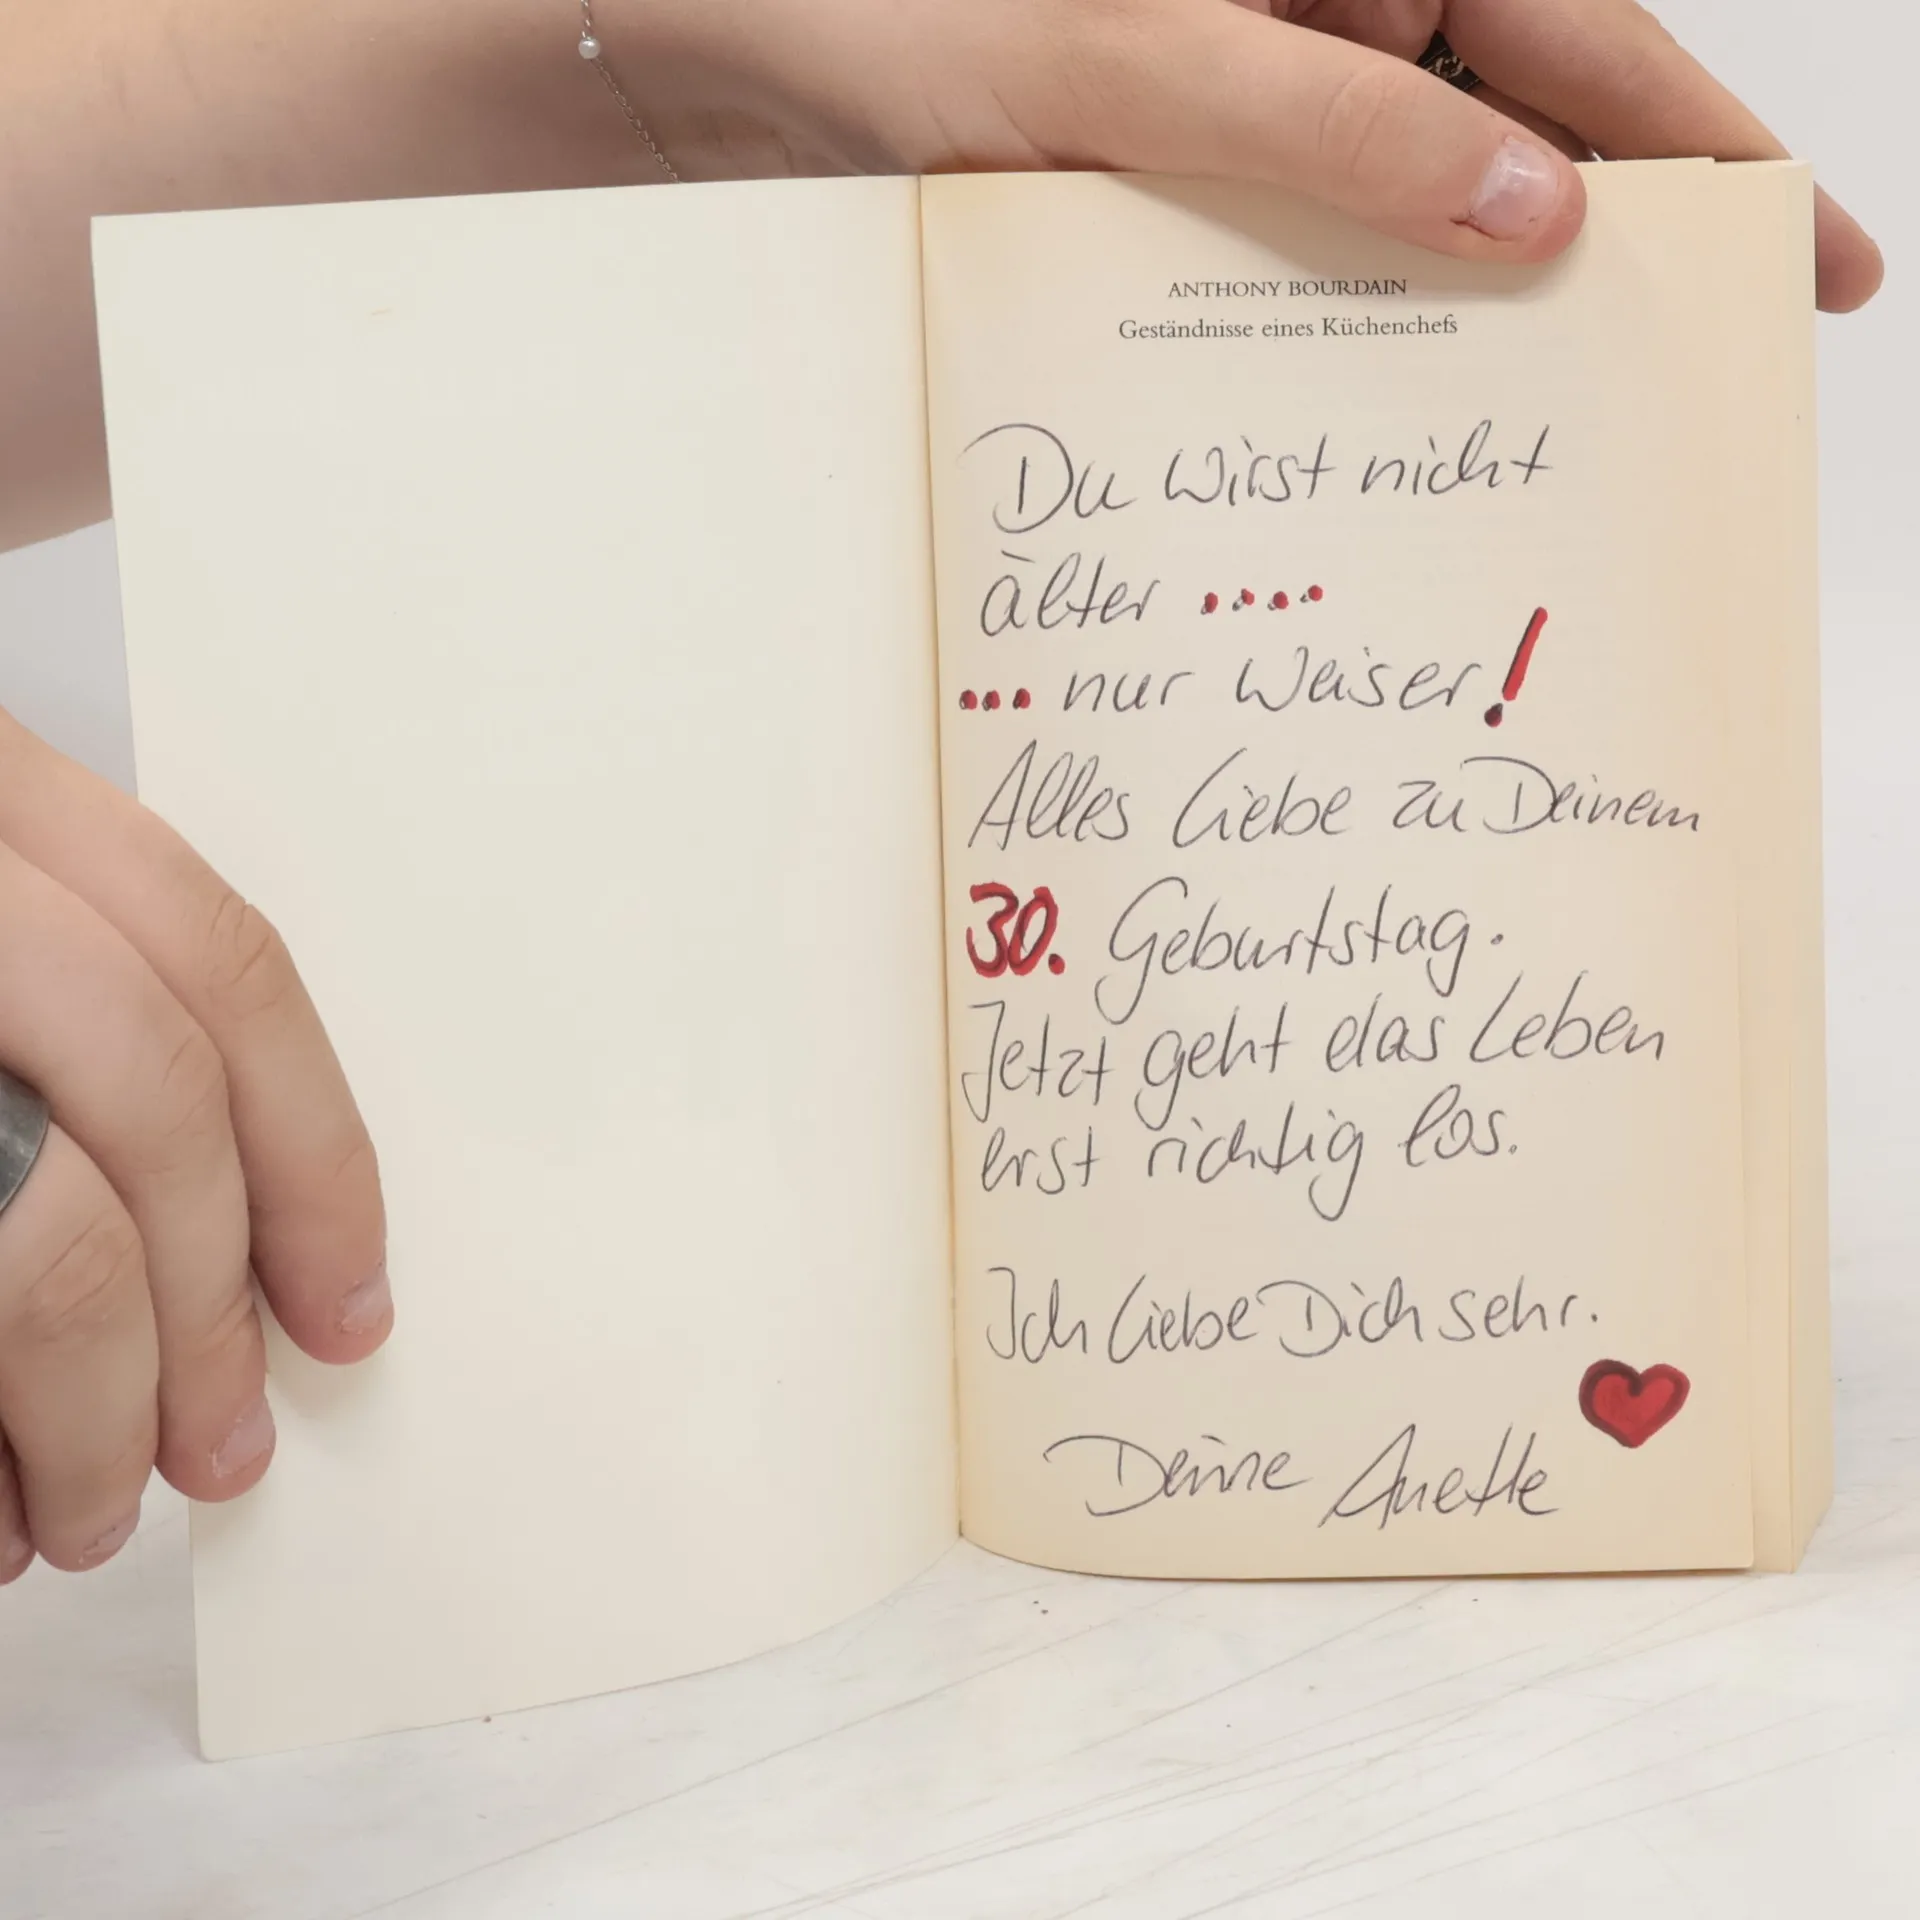 ANTHONY BOURDAIN
Geständnisse eines Küchenchefs
Du wirst nicht
älter ....
... nur weiser!
Alles Liebe zu Deinem
30. Geburtstag.
Jetzt geht das Leben
erst richtig los.
Ich liebe Dich sehr.
Deine Anette